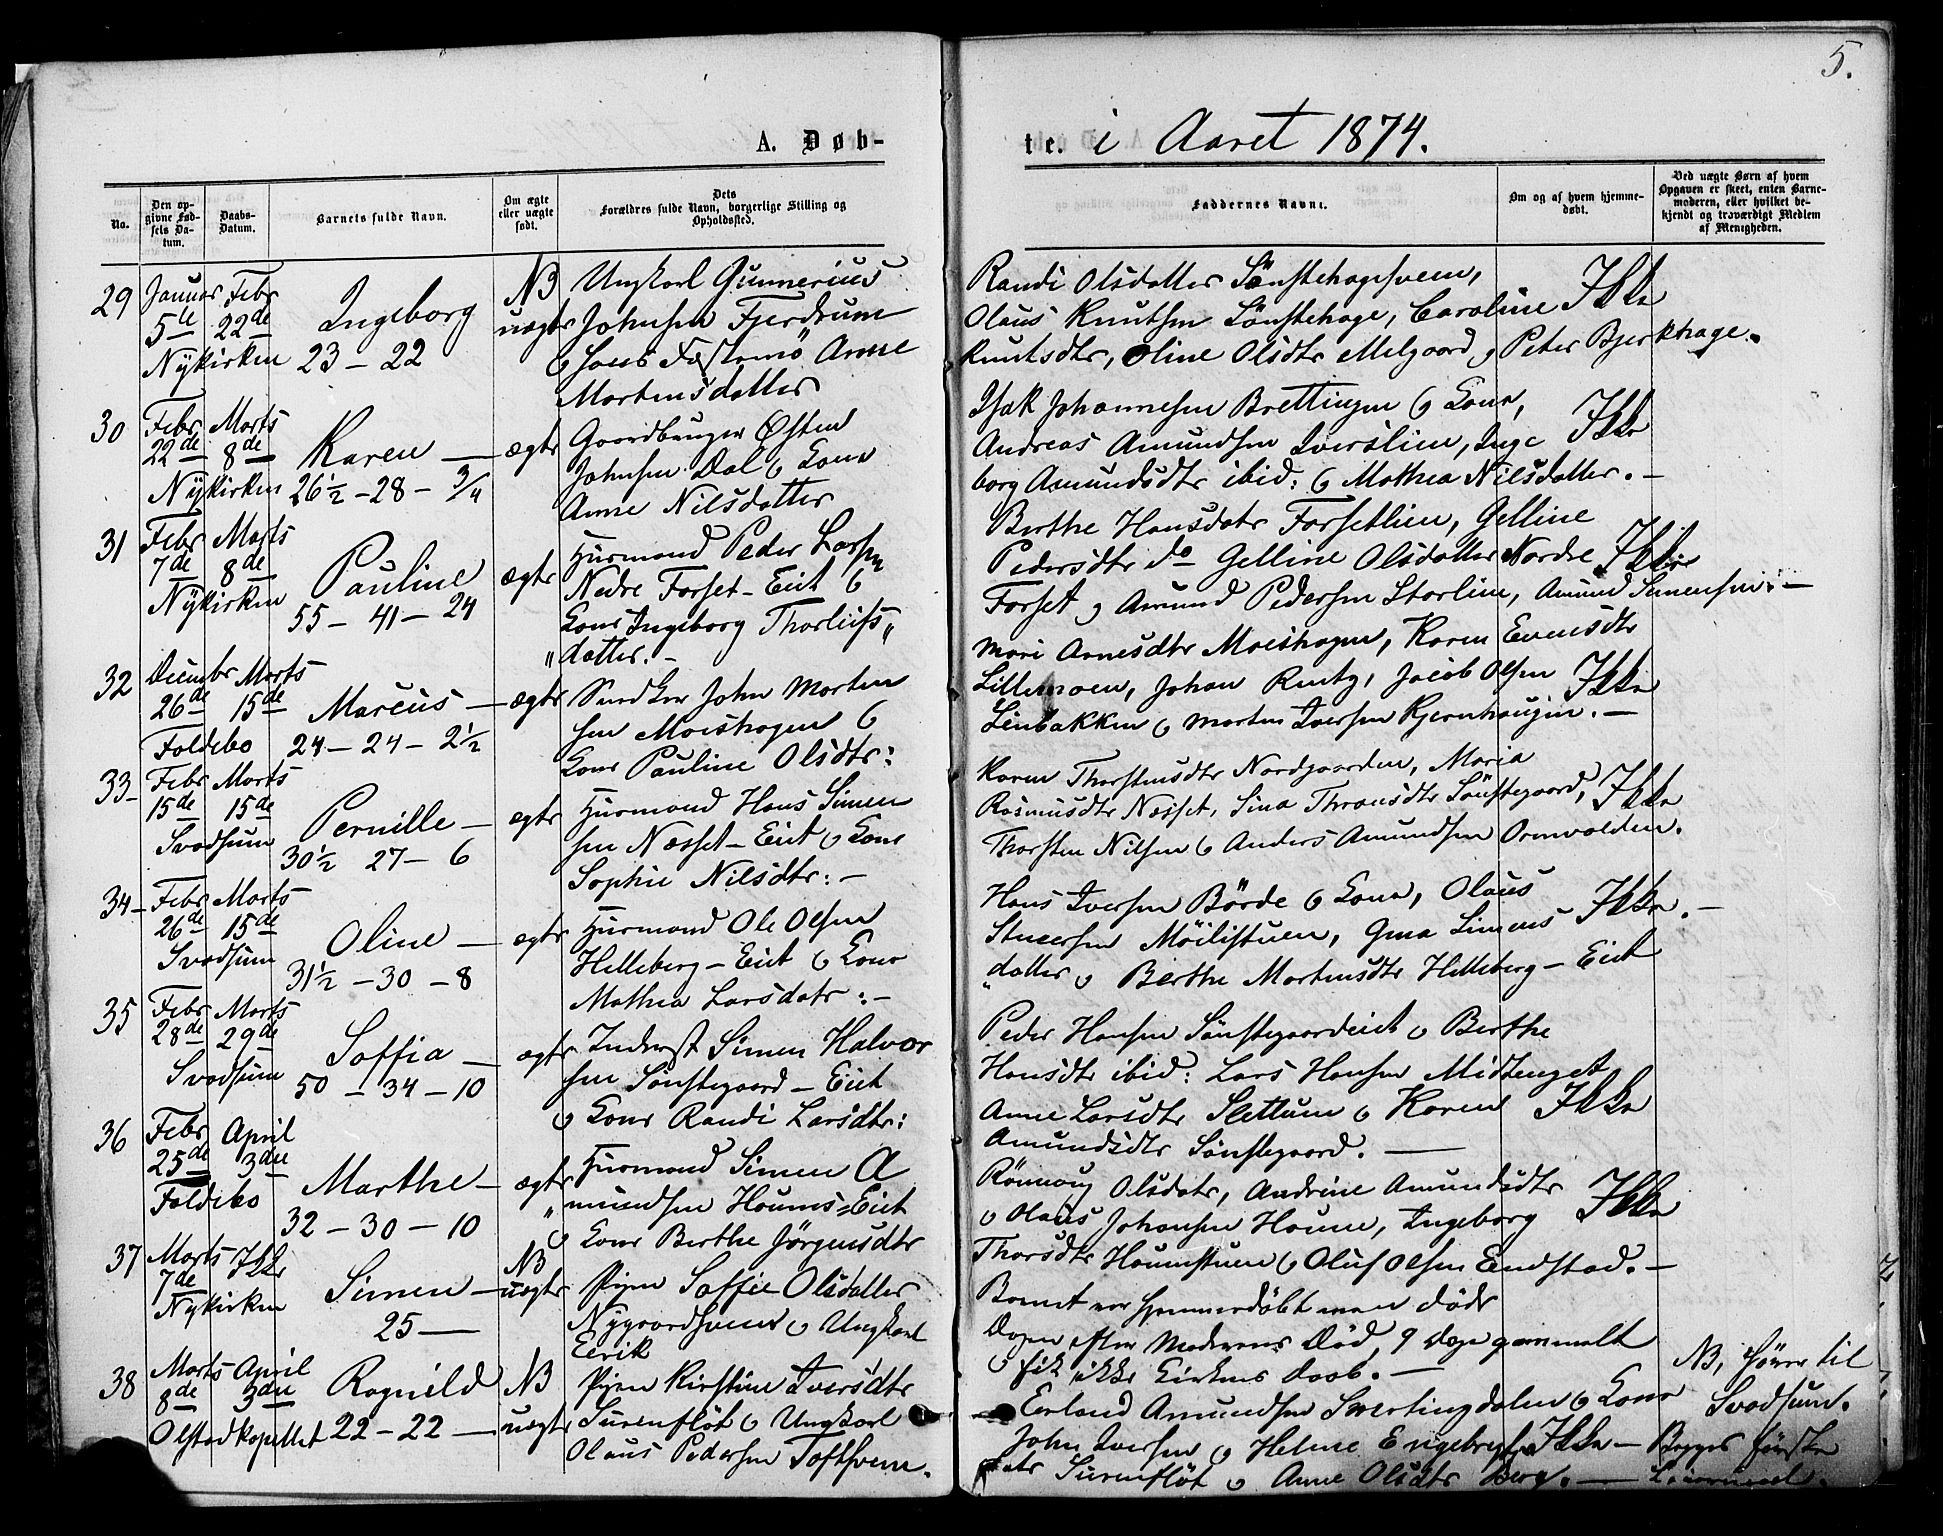 5.
A. Døb-
te. i Aaret 1874.
No.
Den op-
givne Fød-
sels Da-
tum.
Daabs-
Datum.
Barnets fulde Navn.
Om ægte
eller uægte
født.
Dets
Forældres fulde Navn, borgerlige Stilling og
Opholdssted.
Faddernes Navne.
Om og af hvem hjemme-
døbt.
Ved uægte Børn af hvem
Opgaven er skeet, enten Barne-
moderen, eller hvilket be-
kjendt og troværdigt Medlem
af Menigheden.
29
Januar
5te
Febr
22de
Nykirken
Ingeborg
23 - 22
NB
uægte
Ungkarl Gunnerius
Johnsen Fjerdrum
Anne
Mortensdatter
Randi Olsdatter
Olaus Knutsen Sønstehage, Caroline
Knutsdtr, Oline Olsdtr Melgaard og Peter Bjerkhage.
Ikke
30
Febr
22de
Marts
8de
Nykirken
Karen
26½ - 28 - ¾
ægte
Gaardbruger Østen
Johnsen Dal og Kone
Anne Nilsdatter
Isak Johannesen Brettingen og Kone,
Andreas Amundsen Iverslien, Inge
borg Amundsdtr ibid: og Mathea Nilsdatter. -
Ikke
31
Febr
7de
Marts
8de
Nykirken
Pauline
55 - 41 - 24
ægte
Huusmand Peder Larsen
Nedre Forset-Eiet og
Kone Ingeborg Thorleifs„
„datter. -
Berthe Hansdatr Forsetlien, Gelline
Pedersdtr do Gelline Olsdatter Nordre
Forset og Amund Pedersen Storlien, Amund Simensen: -
Ikke
32
Decembr
26de
Marts
15de
Foldebo
Marcus -
24 - 24 - 2½
ægte
John Morten
sen Moeshagen og
Kone Pauline Olsdtr:
Mari Arnesdtr Moeshagen, Karen Evensdtr
Lillemoen, Johan Rentz, Jacob Olsen
Linbakken og Morten Iversen Kjernhaugen. -
Ikke
33 -
Febr
15de
Marts
15de
Svadsum
Pernille -
30½ 27 - 6
ægte
Huusmand Hans Simen
sen Næsset-Eiet og Kone
Sophie Nilsdtr: -
Karen Thorstensdtr Nordgaarden, Maria
Rasmusdtr Næsset, Sina Thronsdtr Sønstegaard,
Thorsten Nilsen og Anders Amundsen Ormvolden.
Ikke
34 -
Febr
26de
Marts
15de
Svadsum
Oline -
31½ - 30 - 8
ægte
Huusmand Ole Olsen
Helleberg-Eiet og Kone
Mathea Larsdatr: -
Hans Iversen Børde og Kone, Olaus
Møilistuen, Gina Simens
„datter og Berthe Mortensdtr Helleberg-Eiet
Ikke. -
35
Febr
28de
Marts
29de
Svadsum
Soffia -
50 - 34 - 10
ægte
Inderst Simen Halvor
sen Sønstegaard-Eiet
og Kone Randi Larsdtr:
Peder Hansen Sønstegaardeiet og Berthe
Hansdtr ibid: Lars Hansen Midtenget,
Anne Larsdtr Slettum og Karen
Amundsdtr Sønstegaard. -
Ikke
36
Febr
25de
April
3die
Foldebo
Marthe -
32 - 30 - 10
ægte
Huusmand Simen A
„mundsen Houms=Eiet
og Kone Berthe Jørgensdtr
Rønnoug Olsdatr, Andrine Amundsdtr
og Olaus Johansen Houme, Ingeborg
Thorsdtr Houmstuen og Oluf Olsen Endstad. -
Ikke
37
Marts
7de
Ikke
Nykirken
Simen -
25 -
NB
uægte
Pigen Soffie Olsdatter
og Ungkarl
Eerik
Barnet var hjemmedøbt men døde
Dagen efter Moderens Død, 9 Dage gammelt
og fik ikke Kirkens Daab. -
38
Marts
8de
April
3die
Olstadkapellet
Ragnild
22 - 22 -
NB
uægte
Pigen Kirstine Iversdtr
Surenfløt og Ungkarl
Olaus Pedersen
Erland Amundsen Svertingdalen og Kone
John Iversen og Helene Engebregts
datr Surenfløt og Anne Olsdtr Berg. -
Ikke -
NB, hører til
Svadsum.
Begges første
Leiermaal.